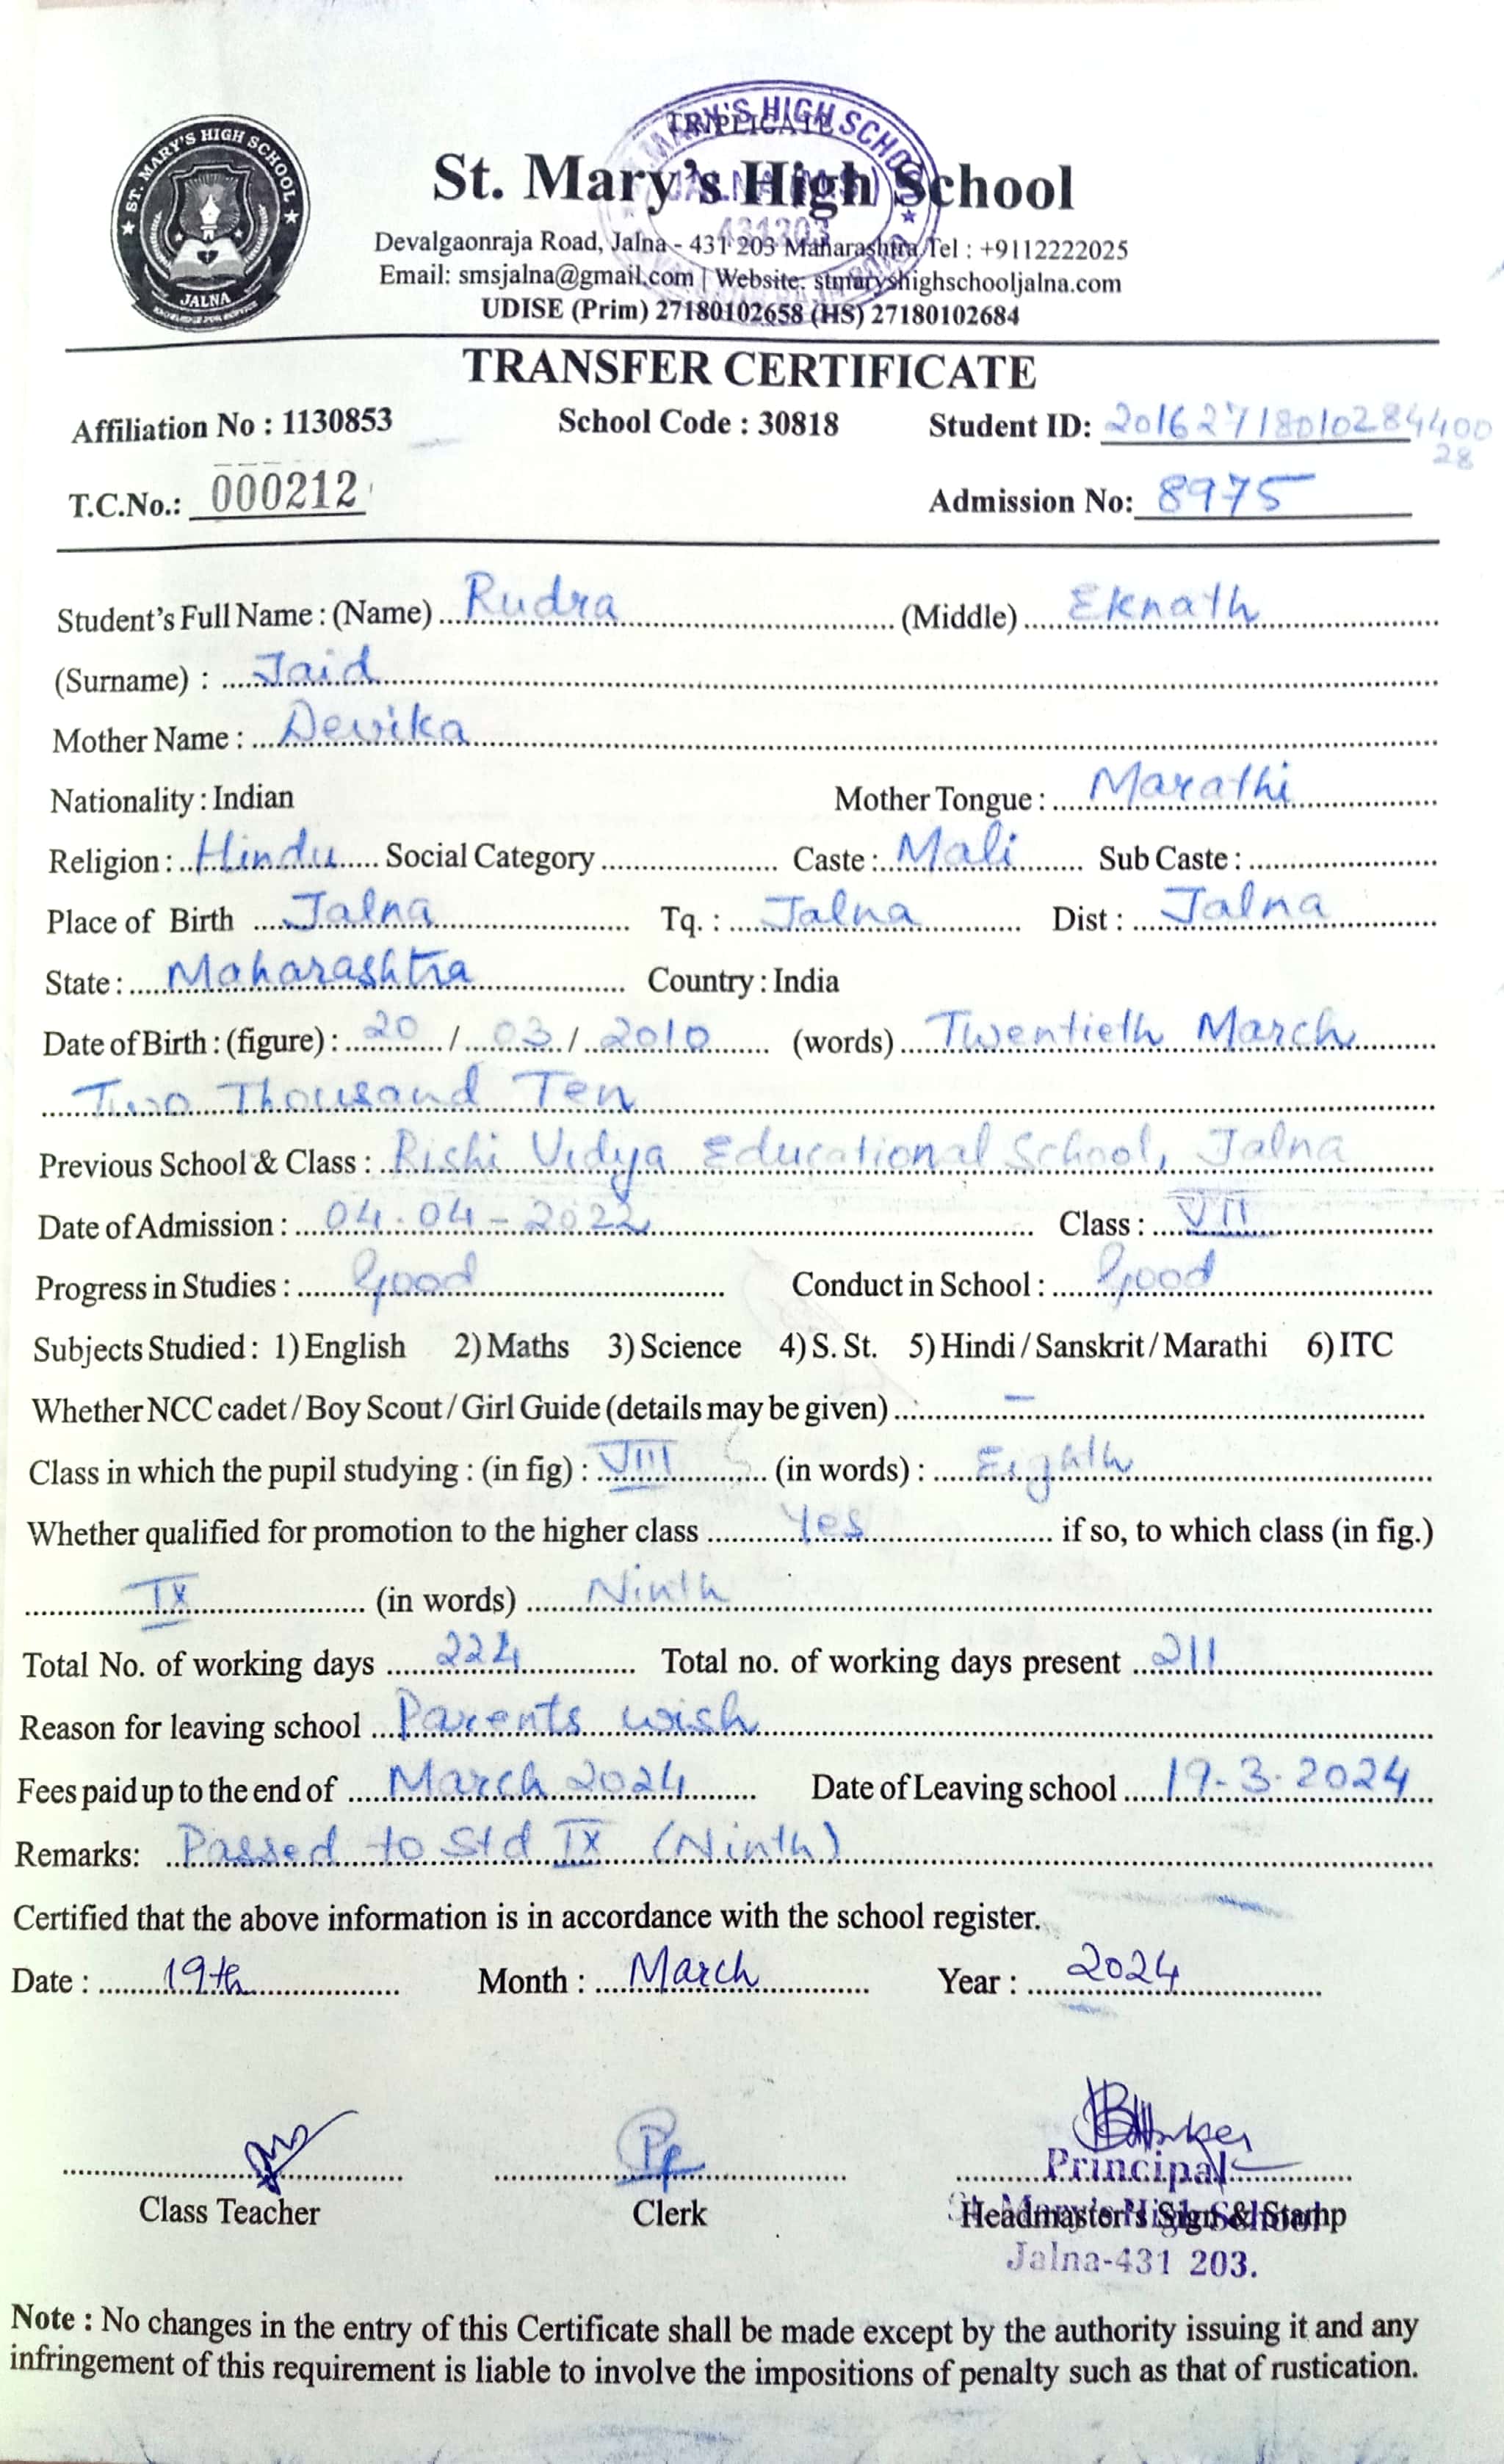 ST. MARY'S HIGH SCHOOL
JALNA
TRIPLICATE
MARY'S HIGH SCHOOL
431203
St. Mary's High School
Devalgaonraja Road, Jalna - 431 203 Maharashtra Tel : +9112222025
Email: smsjalna@gmail.com | Website: stmaryshighschooljalna.com
UDISE (Prim) 27180102658 (HS) 27180102684
TRANSFER CERTIFICATE
Affiliation No : 1130853 School Code : 30818 Student ID: 2016271801028440028
T.C.No.: 000212 Admission No: 8975
Student's Full Name : (Name) Rudra (Middle) Eknath
(Surname) : Jaid
Mother Name : Devika
Nationality : Indian Mother Tongue : Marathi
Religion : Hindu Social Category Caste : Mali Sub Caste :
Place of Birth Jalna Tq. : Jalna Dist : Jalna
State : Maharashtra Country : India
Date of Birth : (figure) : 20 / 03 / 2010 (words) Twentieth March
Two Thousand Ten
Previous School & Class : Rishi Vidya Educational School, Jalna
Date of Admission : 04.04-2022 Class : VII
Progress in Studies : Good Conduct in School : Good
Subjects Studied : 1) English 2) Maths 3) Science 4) S. St. 5) Hindi / Sanskrit / Marathi 6) ITC
Whether NCC cadet / Boy Scout / Girl Guide (details may be given) –
Class in which the pupil studying : (in fig) : VIII (in words) : Eighth
Whether qualified for promotion to the higher class Yes if so, to which class (in fig.)
IX (in words) Ninth
Total No. of working days 224 Total no. of working days present 211
Reason for leaving school Parents wish
Fees paid up to the end of March 2024 Date of Leaving school 19-3-2024
Remarks: Passed to Std IX (Ninth)
Certified that the above information is in accordance with the school register.
Date : 19th Month : March Year : 2024
Principal
Class Teacher Clerk Headmaster's Sign & Stamp
Jalna-431 203.
Note : No changes in the entry of this Certificate shall be made except by the authority issuing it and any
infringement of this requirement is liable to involve the impositions of penalty such as that of rustication.